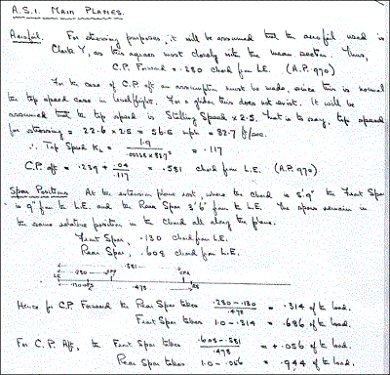 A.S.1. MAIN PLANES.
Aerofoil. For stressing purposes, it will be assumed that the aerofoil used is
Clark Y, as this agrees most closely with the mean section. Thus,
C.P. Forward = .280 chord from L.E. (A.P. 970)
For the case of C.P. aft an assumption must be made, since this is normal
the top speed case in level flight. For a glider this does not exist. It will be
assumed that the top speed is Stalling Speed x 2.5. That is to say, top speed
for stressing = 22.6 x 2.5 = 56.5 mph = 82.7 f/sec.
∴ Top Speed KL = 1.9 / x 82.7² = .117
C.P. aft = .239 + .04 / .117 = .581 chord from L.E. (A.P. 970)
Spar Positions At the extension plane root, where the chord is 5'9" the Front Spar
is 9" from the L.E. and the Rear Spar 3'6" from the L.E. The spars remain in
the same relative position in the chord all along the plane.
Front Spar, .130 chord from L.E.
Rear Spar, .608 chord from L.E.
.581
LE .280 CPF CPA
.130 .478 RS
Hence for C.P. Forward the Rear Spar takes .280 - .130 / .478 = .314 of the load.
Front Spar takes 1.0 - .314 = .686 of the load.
For C.P. Aft, the Front Spar takes .608 - .581 / .478 = + .056 of the load.
Rear Spar takes 1.0 - .056 = .944 of the load.